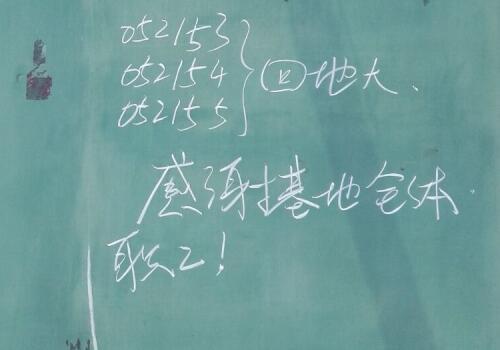 052153
052154 回地大、
052155
感谢基地全体
职工!